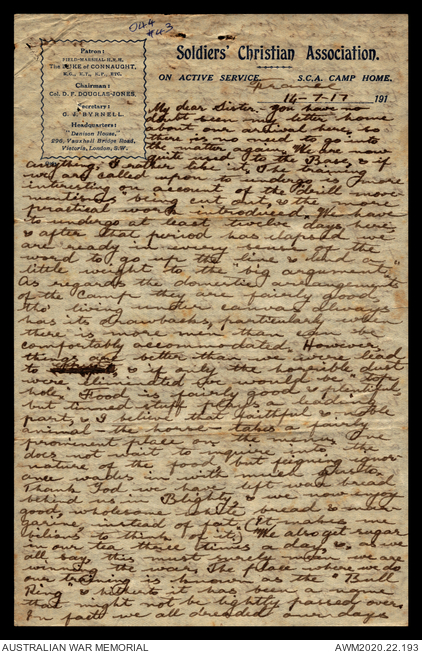 044
#43
Patron:
FIELD-MARSHAL H.R.H.
The DUKE of CONNAUGHT,
K.G., K.T., K.P., ETC.
Chairman:
Col. D. F. DOUGLAS-JONES.
Secretary:
G. J. BYRNELL.
Headquarters:
"Denison House,"
296, Vauxhall Bridge Road,
Victoria, London, S.W.
Soldiers' Christian Association.
ON ACTIVE SERVICE. S.C.A. CAMP HOME.
France
14-7-17 191
My dear Sister - you have no
doubt seen my letter home
about our arrival here, so
there is no need to go into
the matter again. We are now
quite used to the Base, & if
anything, I rather like it. The training
we are called upon to undergo is more
interesting on account of the drill move-
ments being cut out, & the more
practical work introduced. We have
to undergo at least twelve days here
& after that period has elapsed we
are ready in every sense of the
word to go up the line & lend a
little weight to the "big argument."
As regards the domestic arrangements
of the camp they are fairly good
tho' living under canvas always
has its drawbacks, particularly when
there is more men than can be
comfortably accommodated. However,
things are better than we were lead
to & if only the horrible dust
were eliminated we would be "tops
hole." Food is fairly good & plentiful,
but tinned stuff plays a leading
part, & I believe that faithful & noble
animal - the horse - takes a fairly
prominent place on the menu. One
does not wait to inquire into the
nature of the food, but feigning ignor-
ance wades in with much gusto.
Thank God we have left war bread
behind us in Blighty & we now enjoy
good, wholesome white bread & mar-
garine, instead of fat. (It makes me
bilious to think of it) We also get sugar
in our tea three times a day, & as we
all say this must surely mean we are
winning the war. The place where we do
our training is known as the "Bull
Ring" & hitherto it has been a name
that might not be lightly passed over.
In fact we all dreaded our days
AUSTRALIAN WAR MEMORIAL
AWM2020.22.193